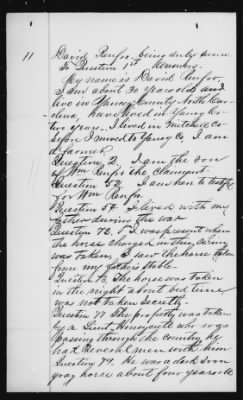 11
David Renfro being duly sworn
To Question 1st Answers.
My name is David Renfro,
I am about 30 years old and
live in Yancy County North Ca-
rolina, have lived in Yancy Co
two years. I lived in Mitchell Co
before I moved to Yancy Co I am
a farmer
Question 2. I am the son
of Wm Renfro the Claimant.
Question 52. I am here to testify
for Wm Renfro.
Question 54 I lived with my
father during the war
Question 72. I was present when
the horse charged in this
was taken, I saw the horse taken
from my fathers stable.
Question 73 The horse was taken
in the night about bed time
was not taken secretly.
Question 77 The property was taken
by a Lieut Honeycutt who was
passing through the country, he
had several men with him
Question 79. He was a dark
gray horse about four years old